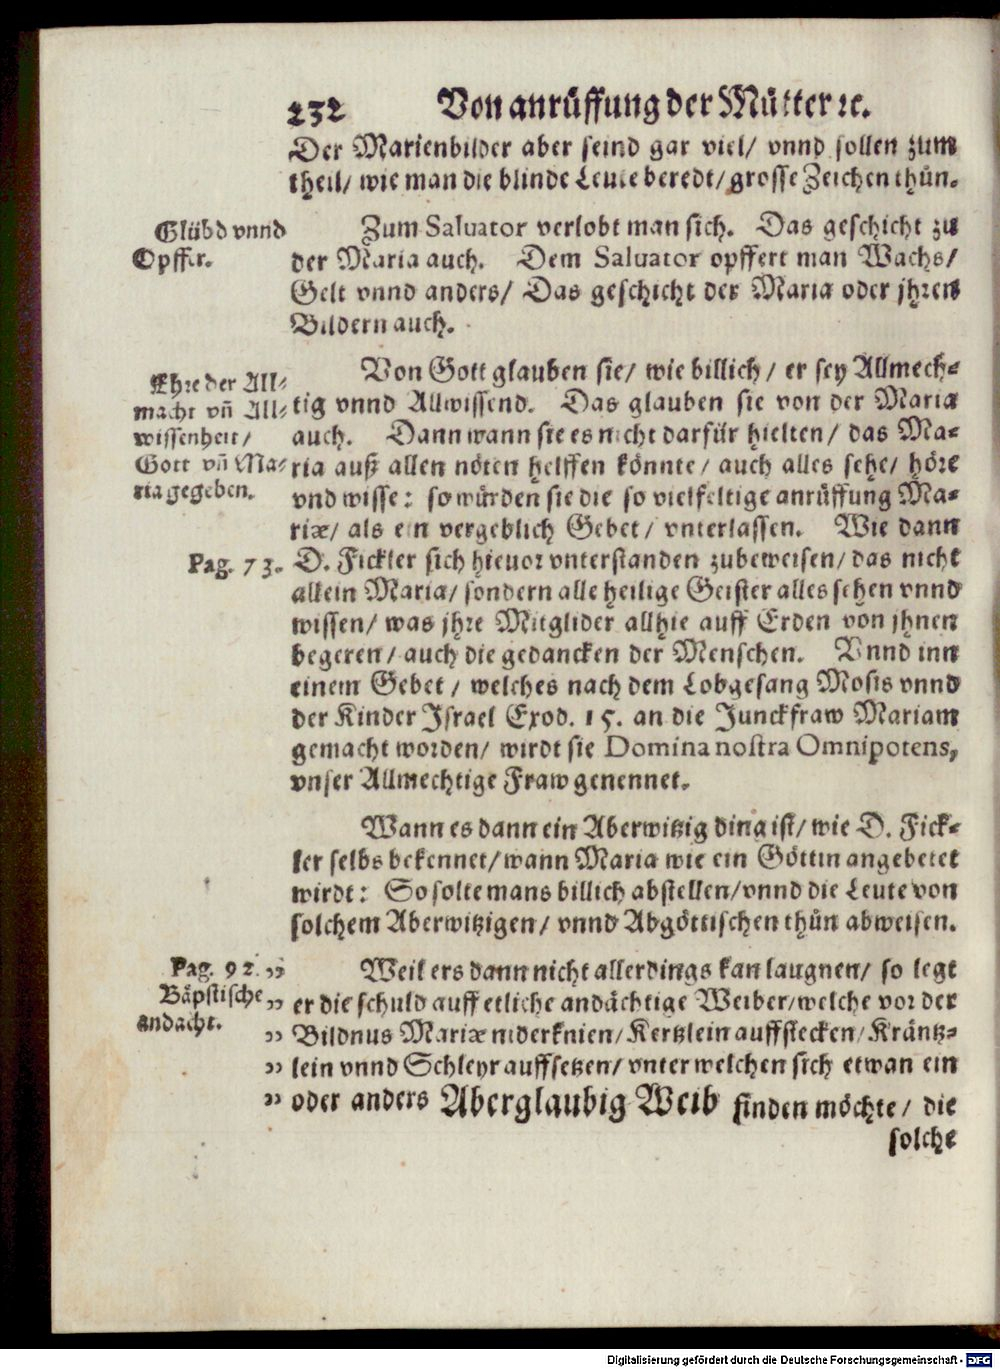 232 Von anrüffung der Mütter ꝛc.
Der Marienbilder aber seind gar viel/ vnnd sollen zum
theil/ wie man die blinde Leute beredt/ grosse Zeichen thün.
Glübd vnnd
Opffer.
Zum Saluator verlobt man sich. Das geschicht zu
der Maria auch. Dem Saluator opffert man Wachs/
Gelt vnnd anders/ Das geschicht der Maria oder jhren
Bildern auch.
Ehre der All⸗
macht vñ All⸗
wissenheit/
Gott vñ Ma⸗
ria gegeben.
Von Gott glauben sie/ wie billich/ er sey Allmech⸗
tig vnnd Allwissend. Das glauben sie von der Maria
auch. Dann wann sie es nicht darfür hielten/ das Ma⸗
ria auß allen nöten helffen könnte/ auch alles sehe/ höre
vnd wisse: so würden sie die so vielfeltige anrüffung Ma⸗
riæ/ als ein vergeblich Gebet/ vnterlassen. Wie dann
Pag. 73.
D. Fickler sich hieuor vnterstanden zubeweisen/ das nicht
allein Maria/ sondern alle heilige Geister alles sehen vnnd
wissen/ was jhre Mitglider allhie auff Erden von jhnen
begeren/ auch die gedancken der Menschen. Vnnd inn
einem Gebet/ welches nach dem Lobgesang Mosis vnnd
der Kinder Jsrael Exod. 15. an die Junckfraw Mariam
gemacht worden/ wirdt sie Domina nostra Omnipotens,
vnser Allmechtige Fraw genennet.
Wann es dann ein Aberwitzig ding ist/ wie D. Fick⸗
ler selbs bekennet/ wann Maria wie ein Göttin angebetet
wirdt: So solte mans billich abstellen/ vnnd die Leute von
solchem Aberwitzigen/ vnnd Abgöttischen thün abweisen.
Pag. 92.
Bäpstische
andacht.
„ Weil ers dann nicht allerdings kan laugnen/ so legt
„ er die schuld auff etliche andächtige Weiber/ welche vor der
„ Bildnus Mariæ niderknien/ Kertzlein auffstecken/ Kräntz⸗
„ lein vnnd Schleyr auffsetzen/ vnter welchen sich etwan ein
„ oder anders Aberglaubig Weib finden möchte/ die
solche
Digitalisierung gefördert durch die Deutsche Forschungsgemeinschaft - DFG